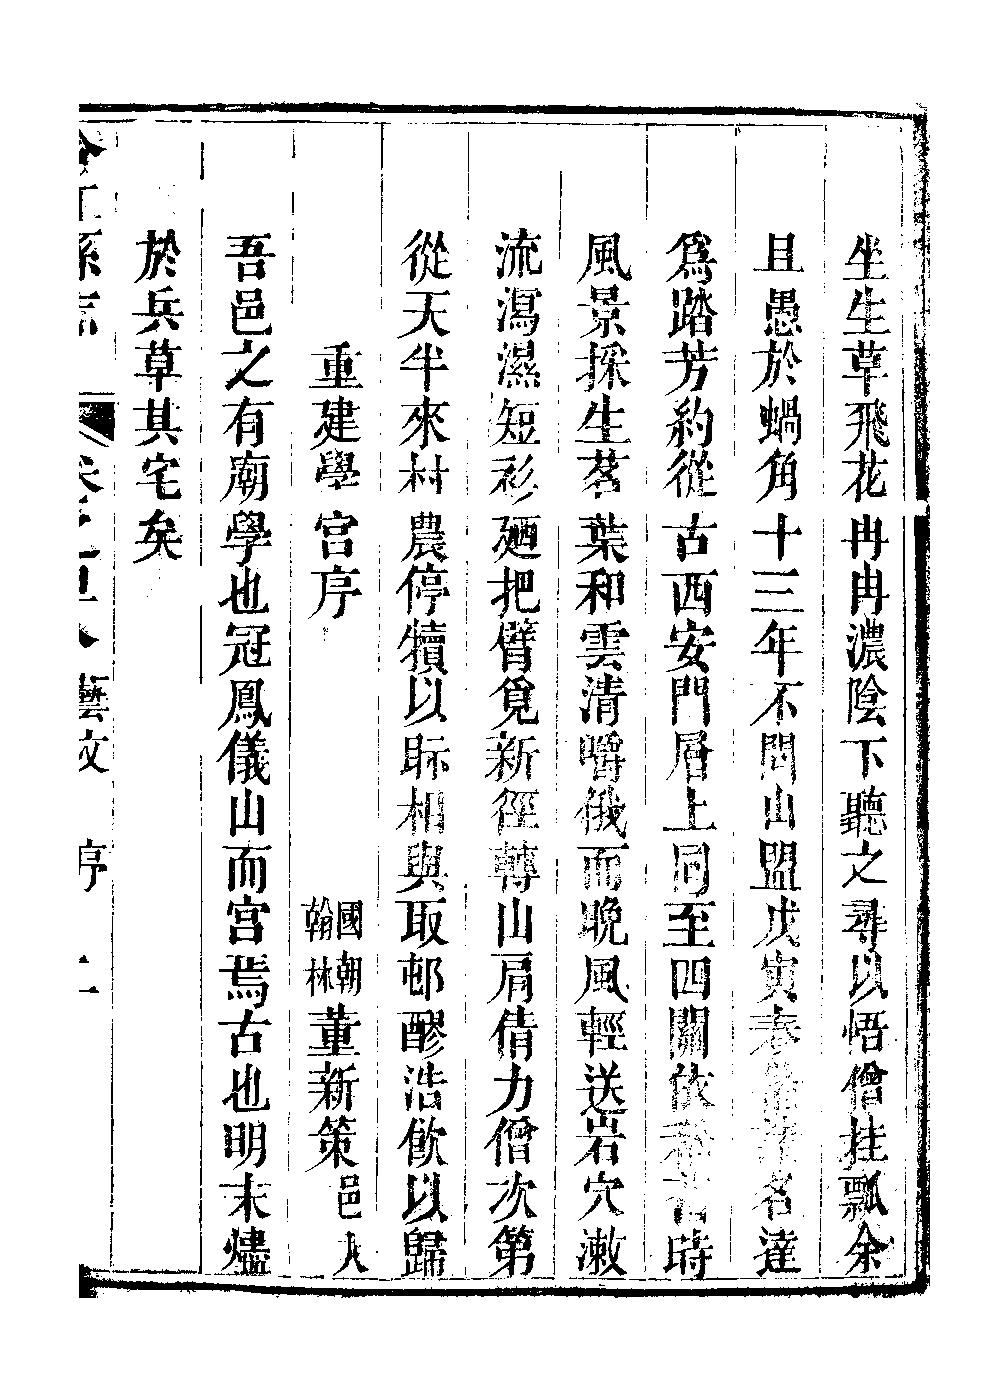 坐生草飛花冉冉濃陰下聽之尋以悟僧挂瓢余
且愚於蝸角十三年不問山盟戊寅春名達
爲踏芳約從古西安門層上同至四關依時
風景採生茗葉和雲清嚼俄而晚風輕送岩穴漱
流瀉濕短衫廼把臂覓新徑轉山肩倩力僧次第
從天半來村農停犢以眎相與取邨醪浩飲以歸
重建學宮序 國朝翰林董新策邑人
吾邑之有廟學也冠鳳儀山而宮焉古也明末燼
於兵草其宅矣
藝文 序